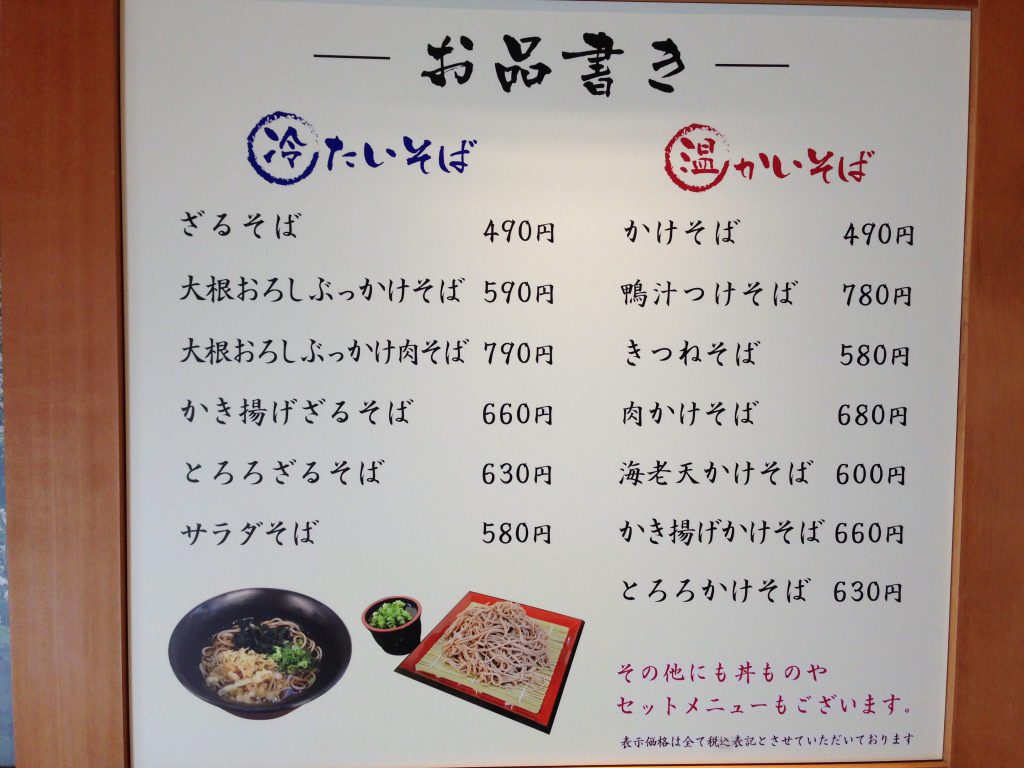 お品書き
冷たいそば
ざるそば 490円
大根おろしぶっかけそば 590円
大根おろしぶっかけ肉そば 790円
かき揚げざるそば 660円
とろろざるそば 630円
サラダそば 580円
温かいそば
かけそば 490円
鴨汁つけそば 780円
きつねそば 580円
肉かけそば 680円
海老天かけそば 600円
かき揚げかけそば 660円
とろろかけそば 630円
その他にも丼ものや
セットメニューもございます。
表示価格は全て税込表記とさせていただいております